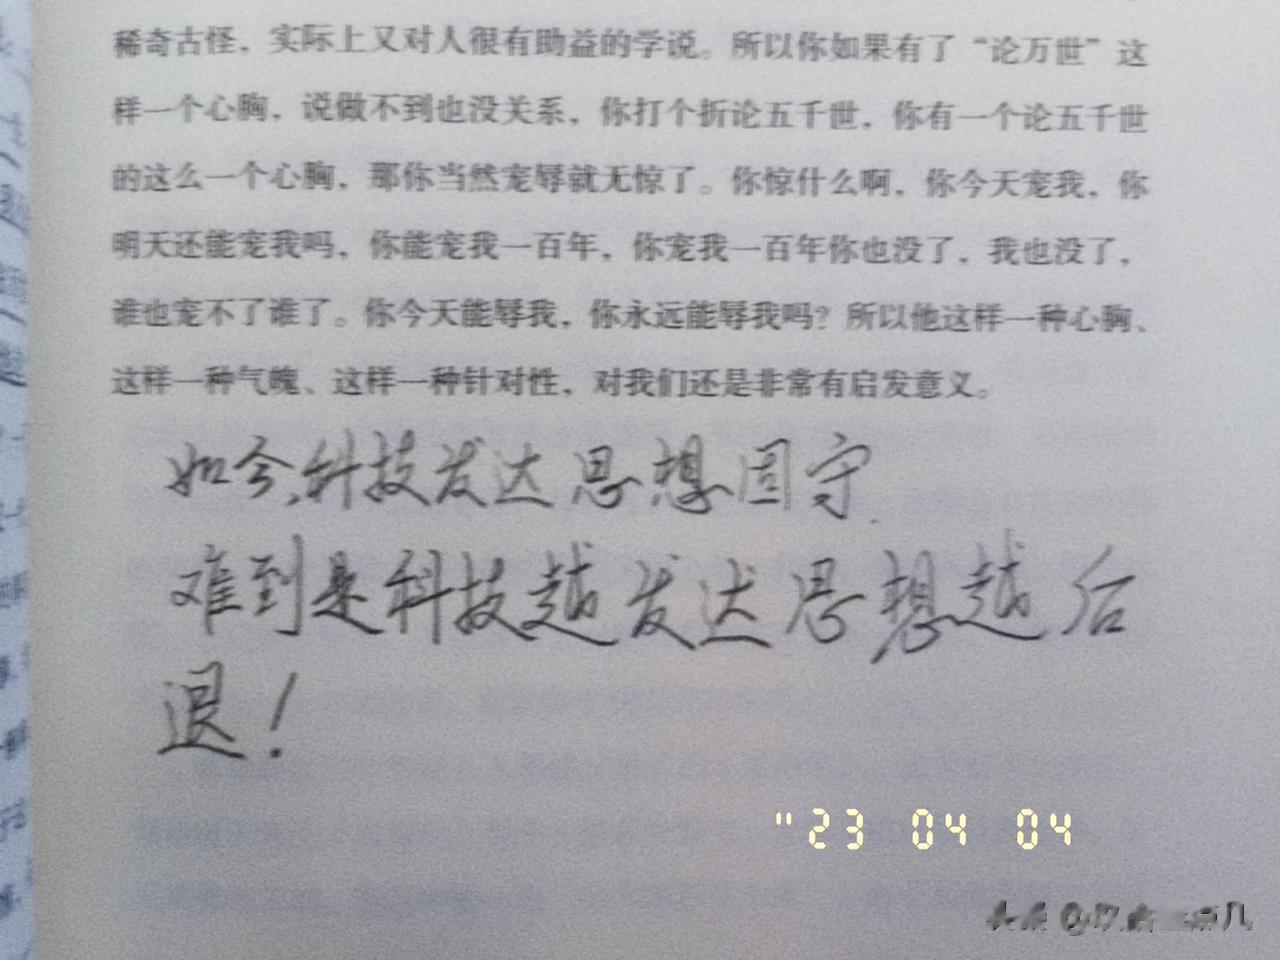 稀奇古怪，实际上又对人很有助益的学说。所以你如果有了“论万世”这
样一个心胸，说做不到也没关系，你打个折论五千世，你有一个论五千世
的这么一个心胸，那你当然宠辱就无惊了。你惊什么啊，你今天宠我，你
明天还能宠我吗，你能宠我一百年，你宠我一百年你也没了，我也没了，
谁也宠不了谁了。你今天能辱我，你永远能辱我吗？所以他这样一种心胸、
这样一种气魄、这样一种针对性，对我们还是非常有启发意义。
如今，科技发达思想固守.
难到是科技越发达思想越后
退！
"23 04 04
头条 @